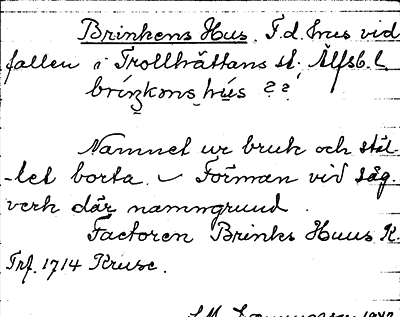 Brinkens Hus. F.d. hus vid
fallen i Trollhättans st. Älfsb. L
brínkons hús ??
Namnet ur bruk och stäl-
-let borta. Förman vid såg-
verk där namngrund.
Factoren Brinks Huus K.
Trf. 1714 Kruse.